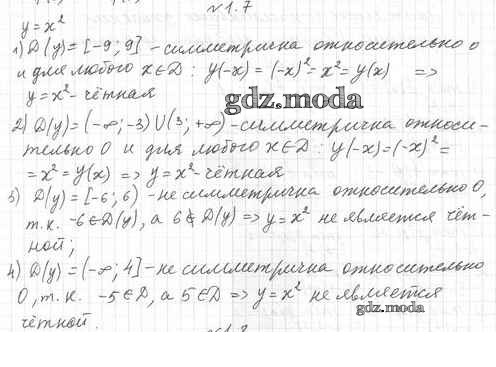 №1.7
y=x²
1) D(y)=[-9;9] - симметрична относительно 0
и для любого x∈D: y(-x)=(-x)²=x²=y(x) =>
y=x² - чётная
gdz.moda
2) D(y)=(-∞;-3)U(3;+∞) - симметрична относи-
тельно 0 и для любого x∈D: y(-x)=(-x)²=
=x²=y(x) => y=x² - чётная
3) D(y)=[-6;6) - не симметрична относительно 0,
т.к. -6∈D(y), а 6∉D(y) => y=x² не является чёт-
ной;
4) D(y)=(-∞;4] - не симметрична относительно
0, т.к. -5∈D, а 5∈D => y=x² не является
gdz.moda
чётной.